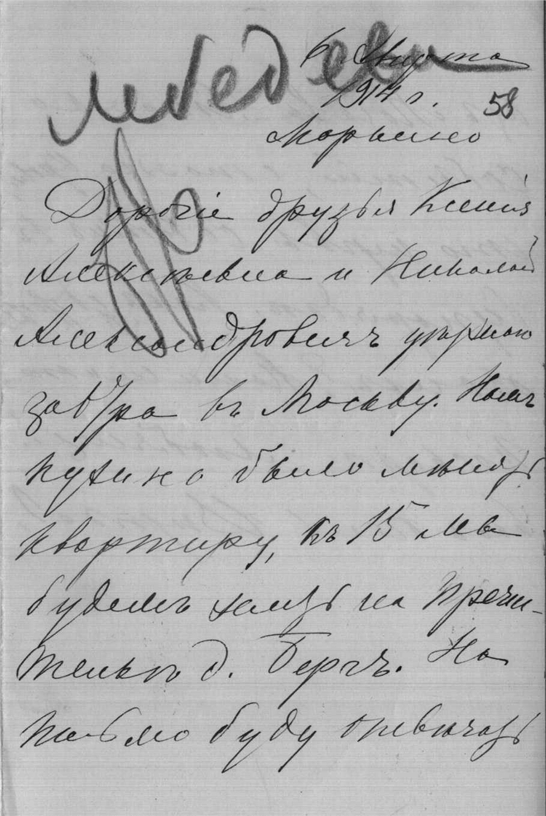 Лебедева
6 Марта
1914 г.
58
Марьино
Дорогіе друзья Ксенія
Алексѣевна и Николай
Александровичъ уѣзжаю
завтра въ Москву. Намъ
нужно было мѣнять
квартиру, къ 15 ма
будемъ жить на Пречи-
д. Бергъ. На
письмо буду отвѣчать